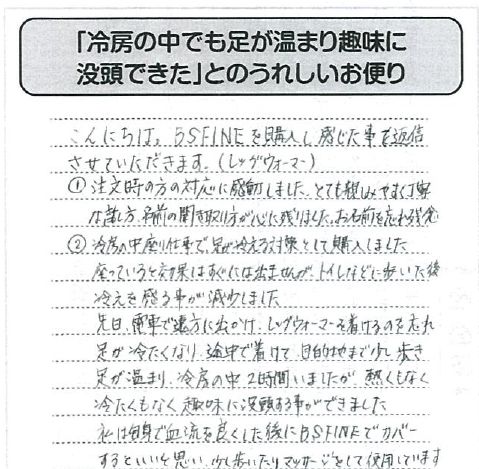 「冷房の中でも足が温まり趣味に
没頭できた」とのうれしいお便り
こんにちは。BSFINEを購入し感じた事を返信
させていただきます。(レッグウォーマー)
① 注文時の方の対応に感動しました。とても親しみやすく丁寧
な話し方、名前の聞き取り方が心に残りました。お名前を忘れ残念
② 冷房の中座り仕事で、足が冷える対策として購入しました
座っていると効果はすぐには出ませんが、トイレなどに歩いた後
冷えを感る事が減少しました
先日、電車で遠方に出かけ、レッグウォーマーを着けるのを忘れ
足が冷たくなり、途中で着けて、目的地まで少し歩き
足が温まり、冷房の中2時間いましたが、熱くもなく
冷たくもなく趣味に没頭する事ができました
私は自身で血流を良くした後にBSFINEでカバー
するといいと思い、少し歩いたりマッサージをして使用しています